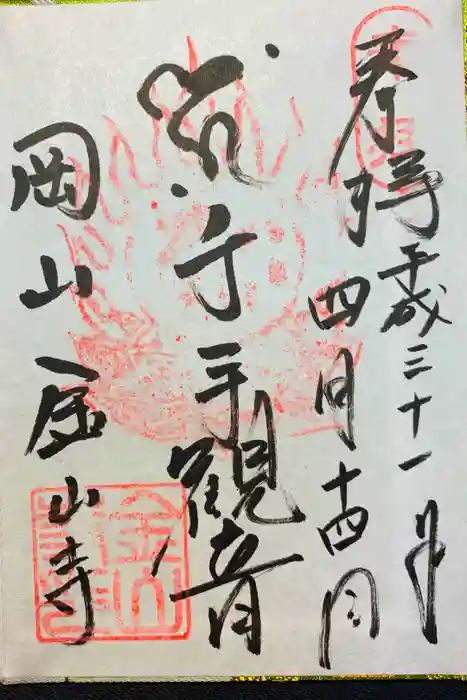 奉拝 平成三十一年
四月十四日
千手觀音
岡山 金山寺